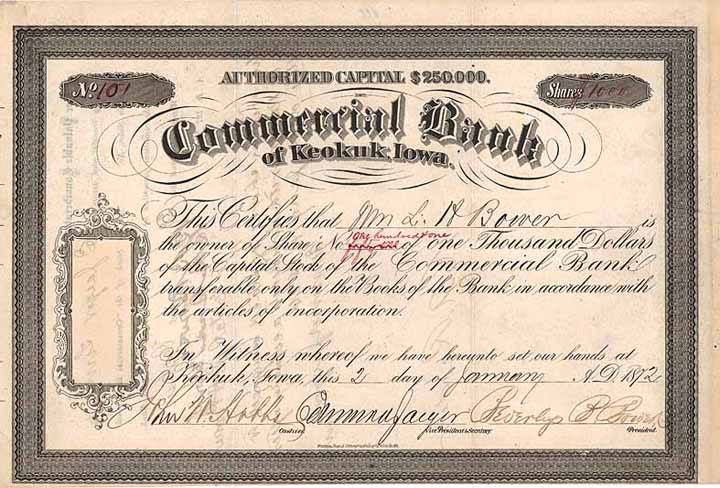 AUTHORIZED CAPITAL $250.000.
No. 101
Shares 1000
Commercial Bank
of Keokuk, Iowa.
This Certifies that Wm L. H Bower is
one hundred & one
the owner of Share No. of One Thousand Dollars
of the Capital Stock of the Commercial Bank
transferable only on the Books of the Bank in accordance with
the articles of incorporation.
In Witness whereof we have hereunto set our hands at
Keokuk, Iowa, this 2 day of January A.D. 1872
Edmund Jaeger
Cashier Vice President & Secretary President